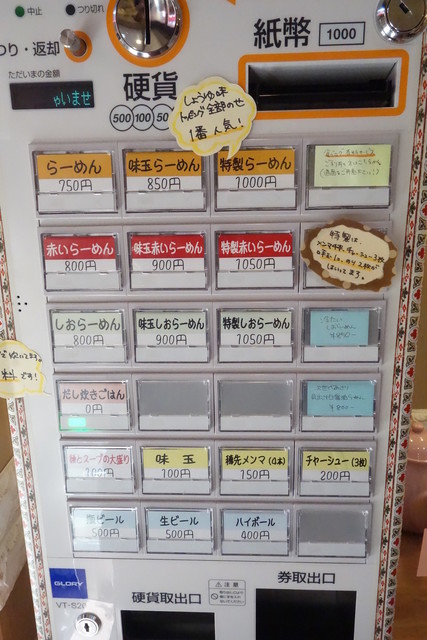 中止
つり切れ
つり・返却
ただいまの金額
ゃいませ
硬貨
500 100 50
紙幣 1000
しょうゆ味
トッピング全部のせ
1番人気!
らーめん
750円
味玉らーめん
850円
特製らーめん
1000円
赤いらーめん
800円
味玉赤いらーめん
900円
特製赤いらーめん
1050円
特製は、
メンマ4本、チャーシュー3枚
味玉1コ、のり2枚が
はいってます。
しおらーめん
800円
味玉しおらーめん
900円
特製しおらーめん
1050円
だし炊きごはん
0円
麺とスープの大盛り
100円
味玉
100円
穂先メンマ(4本)
150円
チャーシュー(3枚)
200円
瓶ビール
500円
生ビール
500円
ハイボール
400円
GLORY
VT-S20
硬貨取出口
注意
券取出口